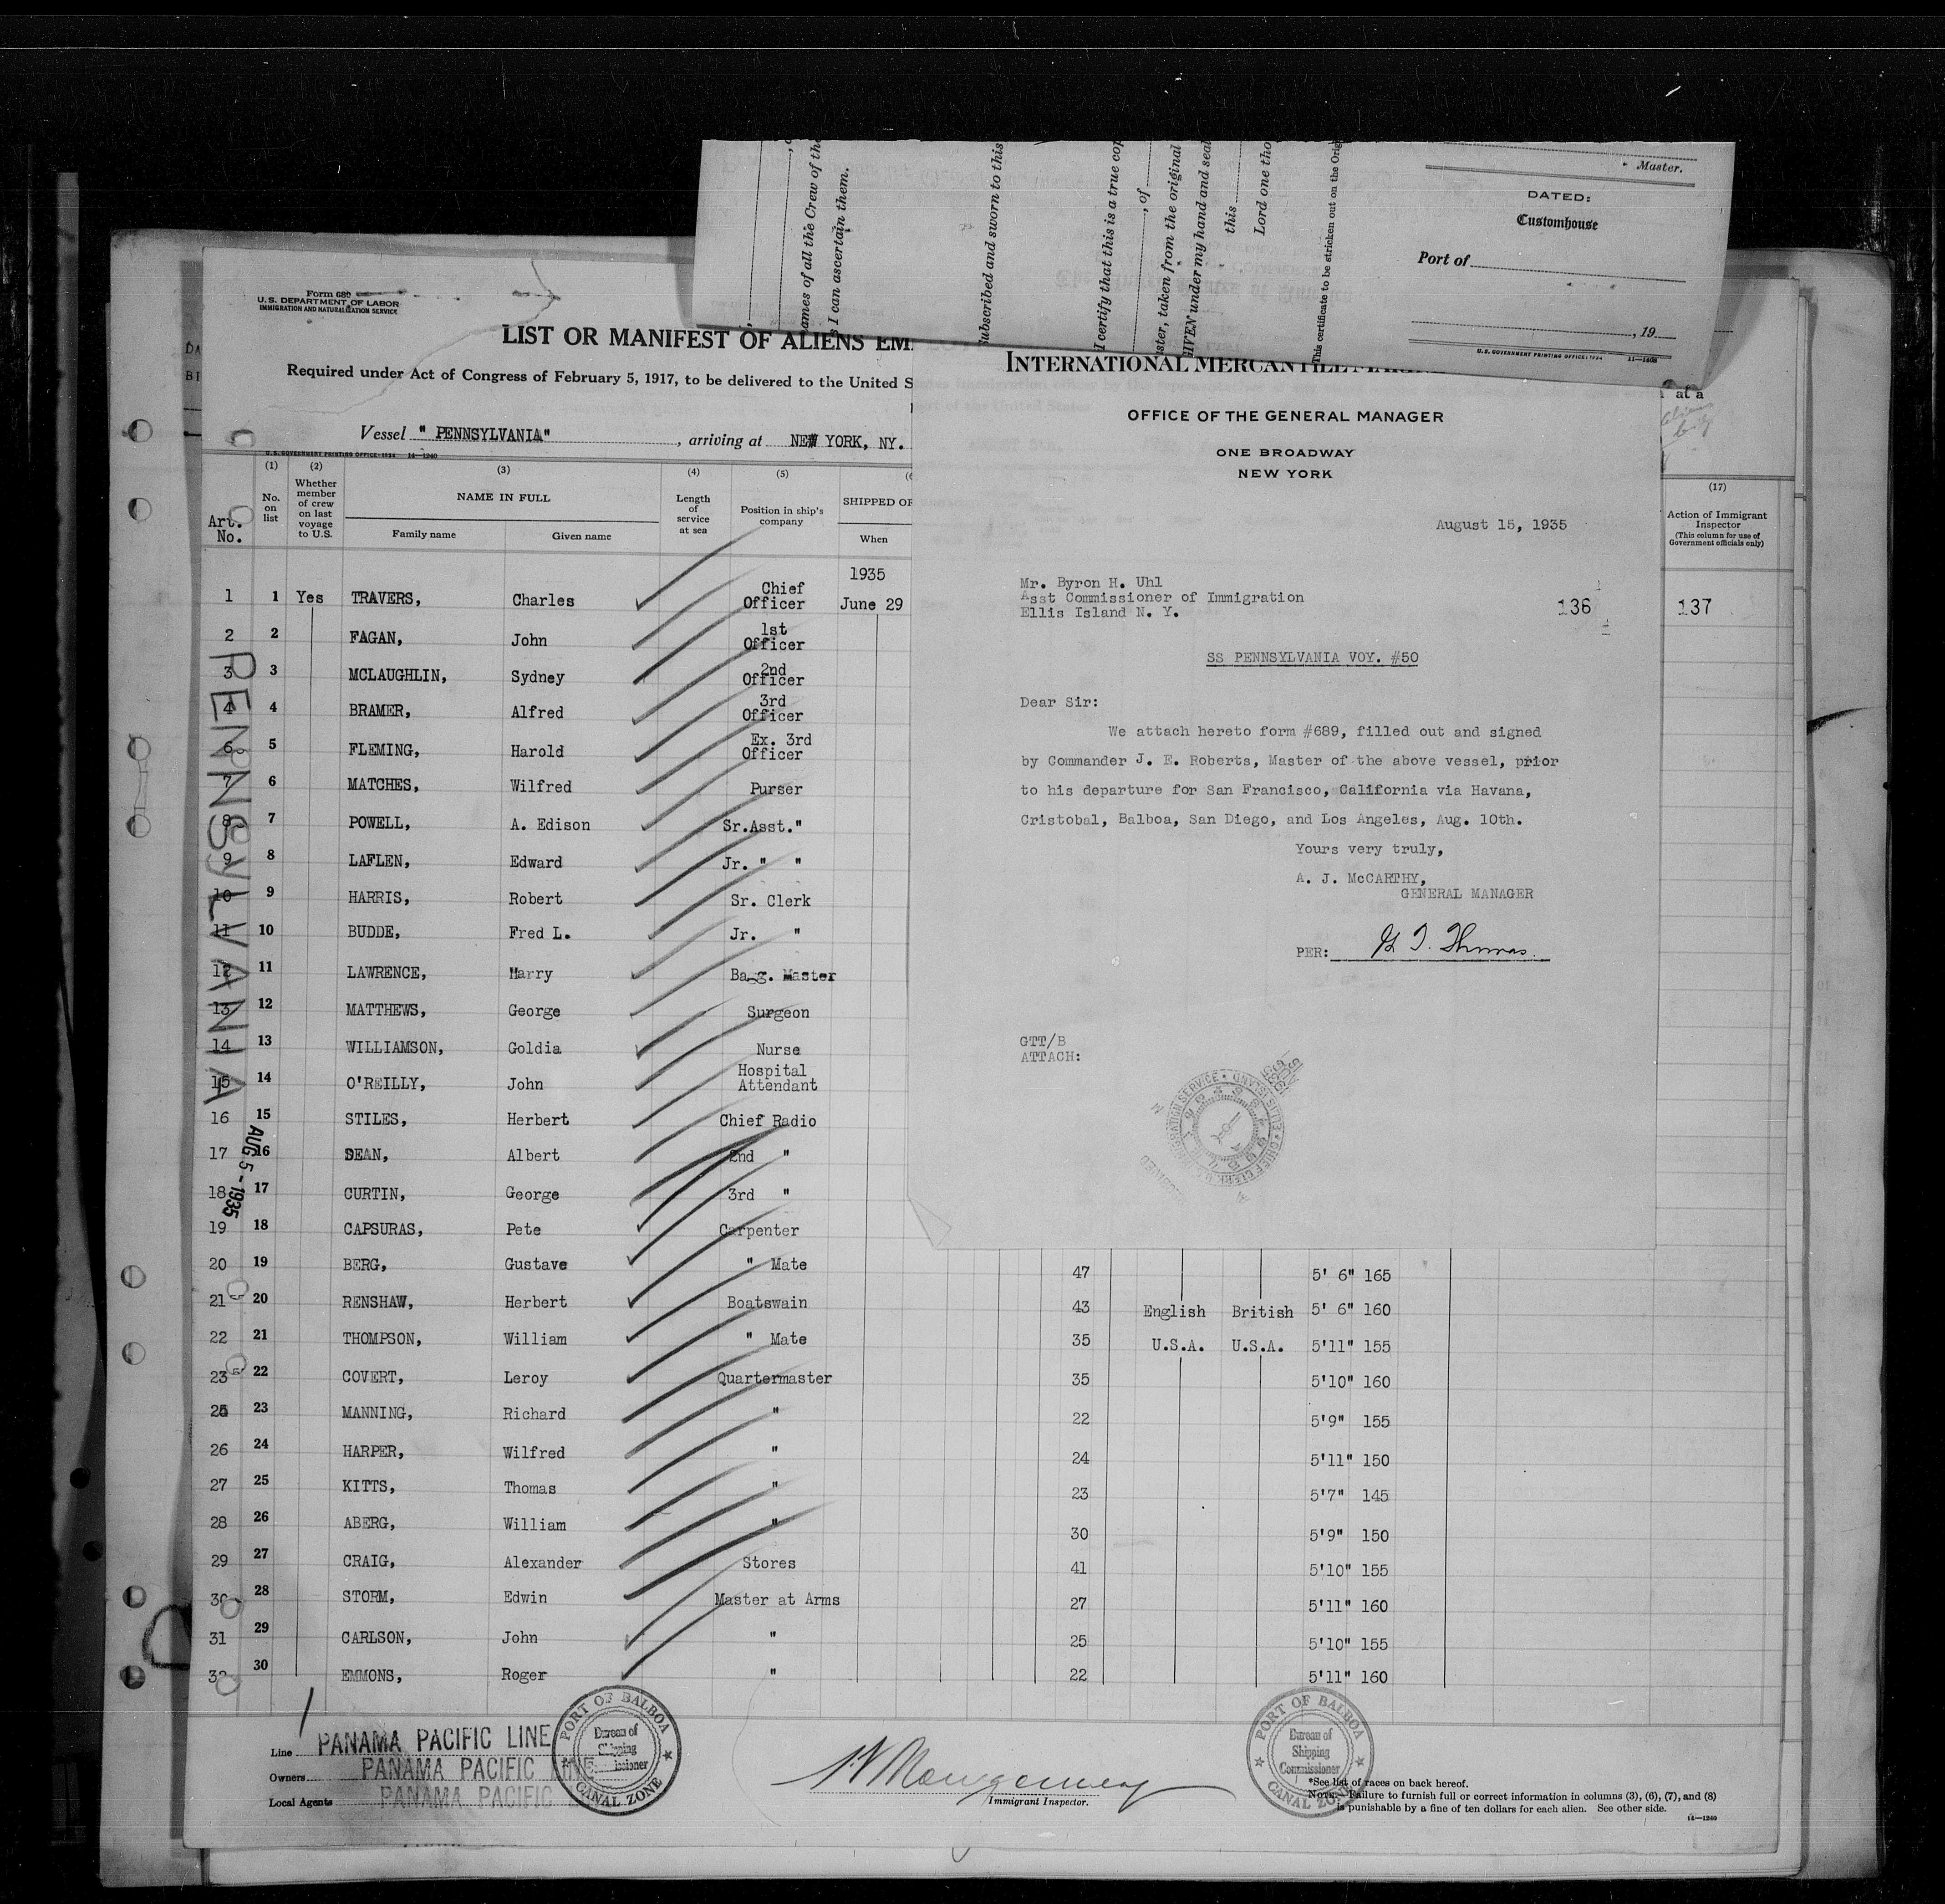 ames of all the Crew of the
s I can ascertain them.
Subscribed and sworn to this
I certify that this is a true cop
, of
ster, taken from the original
GIVEN under my hand and seal
this
Lord one tho
This certificate to be stricken out on the Orig
Master.
DATED:
Customhouse
Port of
, 19
U. S. GOVERNMENT PRINTING OFFICE: 1934 11—1408
Form 680
U. S. DEPARTMENT OF LABOR
IMMIGRATION AND NATURALIZATION SERVICE
LIST OR MANIFEST OF ALIENS EM
Required under Act of Congress of February 5, 1917, to be delivered to the United S
Vessel " PENNSYLVANIA" , arriving at NEW YORK, NY.
U. S. GOVERNMENT PRINTING OFFICE: 1934 14—1240
Art. No.
(1) No. on list
(2) Whether member of crew on last voyage to U.S.
(3) NAME IN FULL
Family name Given name
(4) Length of service at sea
(5) Position in ship's company
SHIPPED OR
When
1935
1 1 Yes TRAVERS, Charles Chief Officer June 29
2 2 FAGAN, John 1st Officer
3 3 MCLAUGHLIN, Sydney 2nd Officer
4 4 BRAMER, Alfred 3rd Officer
6 5 FLEMING, Harold Ex. 3rd Officer
7 6 MATCHES, Wilfred Purser
8 7 POWELL, A. Edison Sr.Asst."
9 8 LAFLEN, Edward Jr. " "
10 9 HARRIS, Robert Sr. Clerk
11 10 BUDDE, Fred L. Jr. "
12 11 LAWRENCE, Harry Bagg. Master
13 12 MATTHEWS, George Surgeon
14 13 WILLIAMSON, Goldia Nurse
15 14 O'REILLY, John Hospital Attendant
16 15 STILES, Herbert Chief Radio
17 16 DEAN, Albert 2nd "
18 17 CURTIN, George 3rd "
19 18 CAPSURAS, Pete Carpenter
20 19 BERG, Gustave " Mate 47 5' 6" 165
21 20 RENSHAW, Herbert Boatswain 43 English British 5' 6" 160
22 21 THOMPSON, William " Mate 35 U.S.A. U.S.A. 5'11" 155
23 22 COVERT, Leroy Quartermaster 35 5'10" 160
25 23 MANNING, Richard " 22 5'9" 155
26 24 HARPER, Wilfred " 24 5'11" 150
27 25 KITTS, Thomas " 23 5'7" 145
28 26 ABERG, William " 30 5'9" 150
29 27 CRAIG, Alexander Stores 41 5'10" 155
30 28 STORM, Edwin Master at Arms 27 5'11" 160
31 29 CARLSON, John " 25 5'10" 155
32 30 EMMONS, Roger " 22 5'11" 160
PENNSYLVANIA
AUG 5 - 1935
INTERNATIONAL MERCANTILE MAR
OFFICE OF THE GENERAL MANAGER
ONE BROADWAY
NEW YORK
August 15, 1935
Mr. Byron H. Uhl
Asst Commissioner of Immigration
Ellis Island N. Y.
136
SS PENNSYLVANIA VOY. #50
Dear Sir:
We attach hereto form #689, filled out and signed
by Commander J. E. Roberts, Master of the above vessel, prior
to his departure for San Francisco, California via Havana,
Cristobal, Balboa, San Diego, and Los Angeles, Aug. 10th.
Yours very truly,
A. J. McCARTHY,
GENERAL MANAGER
PER: G T. Thomas.
GTT/B
ATTACH:
at a
(17)
Action of Immigrant Inspector
(This column for use of Government officials only)
137
Line PANAMA PACIFIC LINE
Owners PANAMA PACIFIC LINE
Local Agents PANAMA PACIFIC
PORT OF BALBOA
Bureau of Shipping Commissioner
CANAL ZONE
Montgomery
Immigrant Inspector.
PORT OF BALBOA
Bureau of Shipping Commissioner
CANAL ZONE
*See list of races on back hereof.
NOTE.—Failure to furnish full or correct information in columns (3), (6), (7), and (8)
is punishable by a fine of ten dollars for each alien. See other side.
14—1240